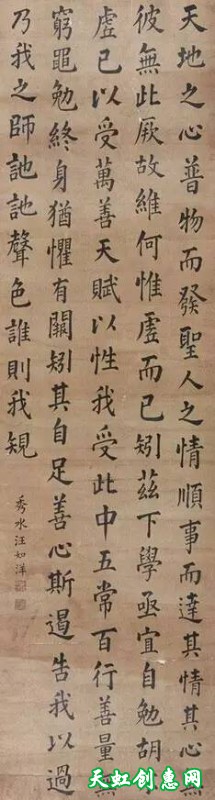 天地之心普物而發聖人之情順事而達其情其心無
彼無此厥故維何惟虛而已矧茲下學亟宜自勉胡
虛己以受萬善天賦以性我受此中五常百行善量無
窮黽勉終身猶懼有闕矧其自足善心斯遏告我以過
乃我之師訑訑聲色誰則我規
秀水汪如洋
天虹创惠网
www.thchyp.com